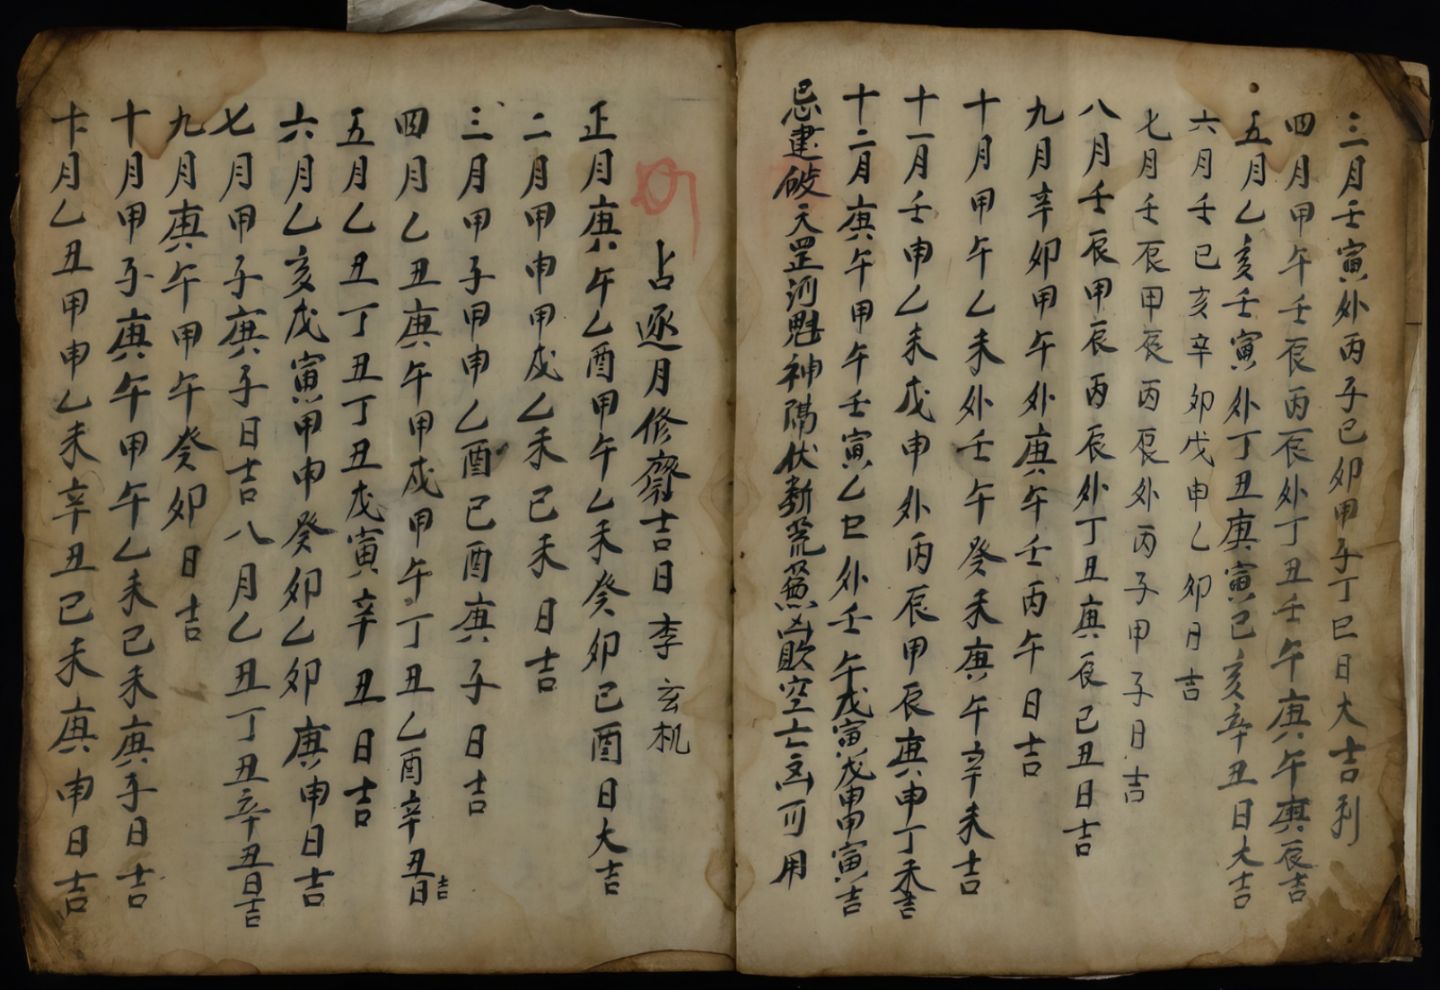 三月壬寅外丙子己卯甲子丁巳日大吉利
四月甲午壬辰丙辰外丁丑壬午庚午庚辰吉
五月乙亥壬寅外丁丑庚寅己亥辛丑日大吉
六月壬巳亥辛卯戊申乙卯日吉
七月壬辰甲辰丙辰外丙子甲子日吉
八月壬辰甲辰丙辰外丁丑庚辰己丑日吉
九月辛卯甲午外庚午壬丙午日吉
十月甲午乙未外壬午癸未庚午辛未吉
十一月壬申乙未戊申外丙辰甲辰庚申丁未吉
十二月庚午甲午壬寅乙巳外壬午戊寅戊申甲寅吉
忌建破天罡河魁神隔伏断荒凶敗空亡
可用
占逐月修齋吉日 李玄机
正月庚午乙酉甲午乙未癸卯己酉日大吉
二月甲申甲戌乙未己未日吉
三月甲子甲申乙酉己酉庚子日吉
四月乙丑庚午甲戌甲午丁丑乙酉辛丑日吉
五月乙丑丁丑丁丑戊寅辛丑日吉
六月乙亥戊寅甲申癸卯乙卯庚申日吉
七月甲子庚子日吉八月乙丑丁丑辛丑日吉
九月庚午甲午癸卯日吉
十月甲子庚午甲午乙未己未庚子日吉
月乙丑甲申乙未辛丑己未庚申日吉